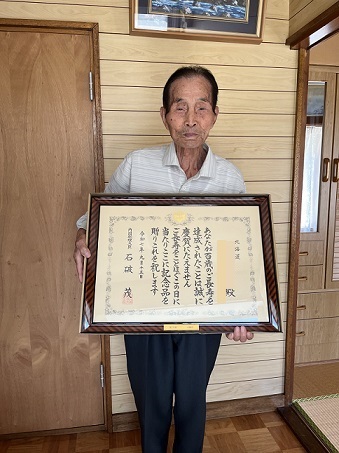 北海道
殿
あなたが百歳のご長寿を
達成されたことは誠に
慶賀にたえません
ご長寿をことほぐこの日に
当たりここに記念品を
贈りこれを祝します
内閣総理大臣
石破 茂